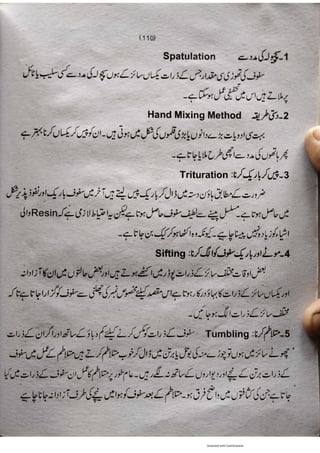 (110)
1۔ سپچولہ کی مدد سے Spatulation
سفوف کی تھوڑی سی مقدار جس کے ذرات یکساں سائز کے ہوں سپچولہ کی مدد سے کسی سلیب یا ٹائل
پر ملاتے ہیں اس میں تخفیفی عمل ہو سکتا ہے۔
2۔ دستی طریقہ Hand Mixing Method
بہت سی ادویات بڑے دانوں یا بڑی قلموں کی شکل میں ہوتی ہیں۔ ان کو پیس کر یکساں کرنا بہتر ہے
پھر ہاتھوں کی مدد سے اچھی طرح ملایا جاتا ہے۔
3۔ پیس کر باریک کرنا: Trituration
ضرورت کے مطابق ہاون دستہ میں ڈال کر باریک پیس لیتے ہیں آخر میں سفوف باریک اور نفوذ پذیر شکل
میں حاصل ہوتا ہے۔ مسلسل پیسنے سے لطیف سفوف حاصل ہوتا ہے لیکن یہ احتیاط لازمی ہے کہ Resin والی
اشیاء کو زیادہ نہیں پیسنا چاہیے۔ کیونکہ وہ اکٹھا ہو کر کیک بن جاتا ہے۔
4۔ موٹے اور باریک سفوف کو الگ کرنا: Sifting
بعض اوقات مختلف سائز کے ذرات پوڈر میں اکٹھے ہوتے ہیں اور بعض حالتوں میں ان کا آزادانہ
اور یکساں سائز کے ذرات کا بہاؤ درکار ہوتا ہے اس مقصد کیلئے مخصوص نمبر کی چھلنی سے سفوف کو گزارا جاتا ہے تاکہ
مختلف سائز کے ذرات الگ ہو جائیں۔
5۔ متلاطم کرنا: Tumbling سفوف کے ذرات کو مکس کرنے کیلئے کم دباؤ کے ساتھ اور اگر ان کے ذرات
چھوٹے سائز میں ہوں تو چوڑے منہ کی بوتل یا برتن میں ڈال کر خوب متلاطم کرتے ہیں متلاطم کے عمل میں سفوف
کے ذرات برتن کے نیچے اور دیواروں کے ساتھ نہ لگے رہیں۔ عام طور پر متلاطم کا عمل ان سفوف کے ذرات میں کیا
جاتا ہے جن کی کثافتوں میں واضح فرق ہو۔ متلاطم کے بعد سفوف کو ہوا میں نیچے کی طرف آزادانہ جانا چاہیے
Scanned with CamScanner